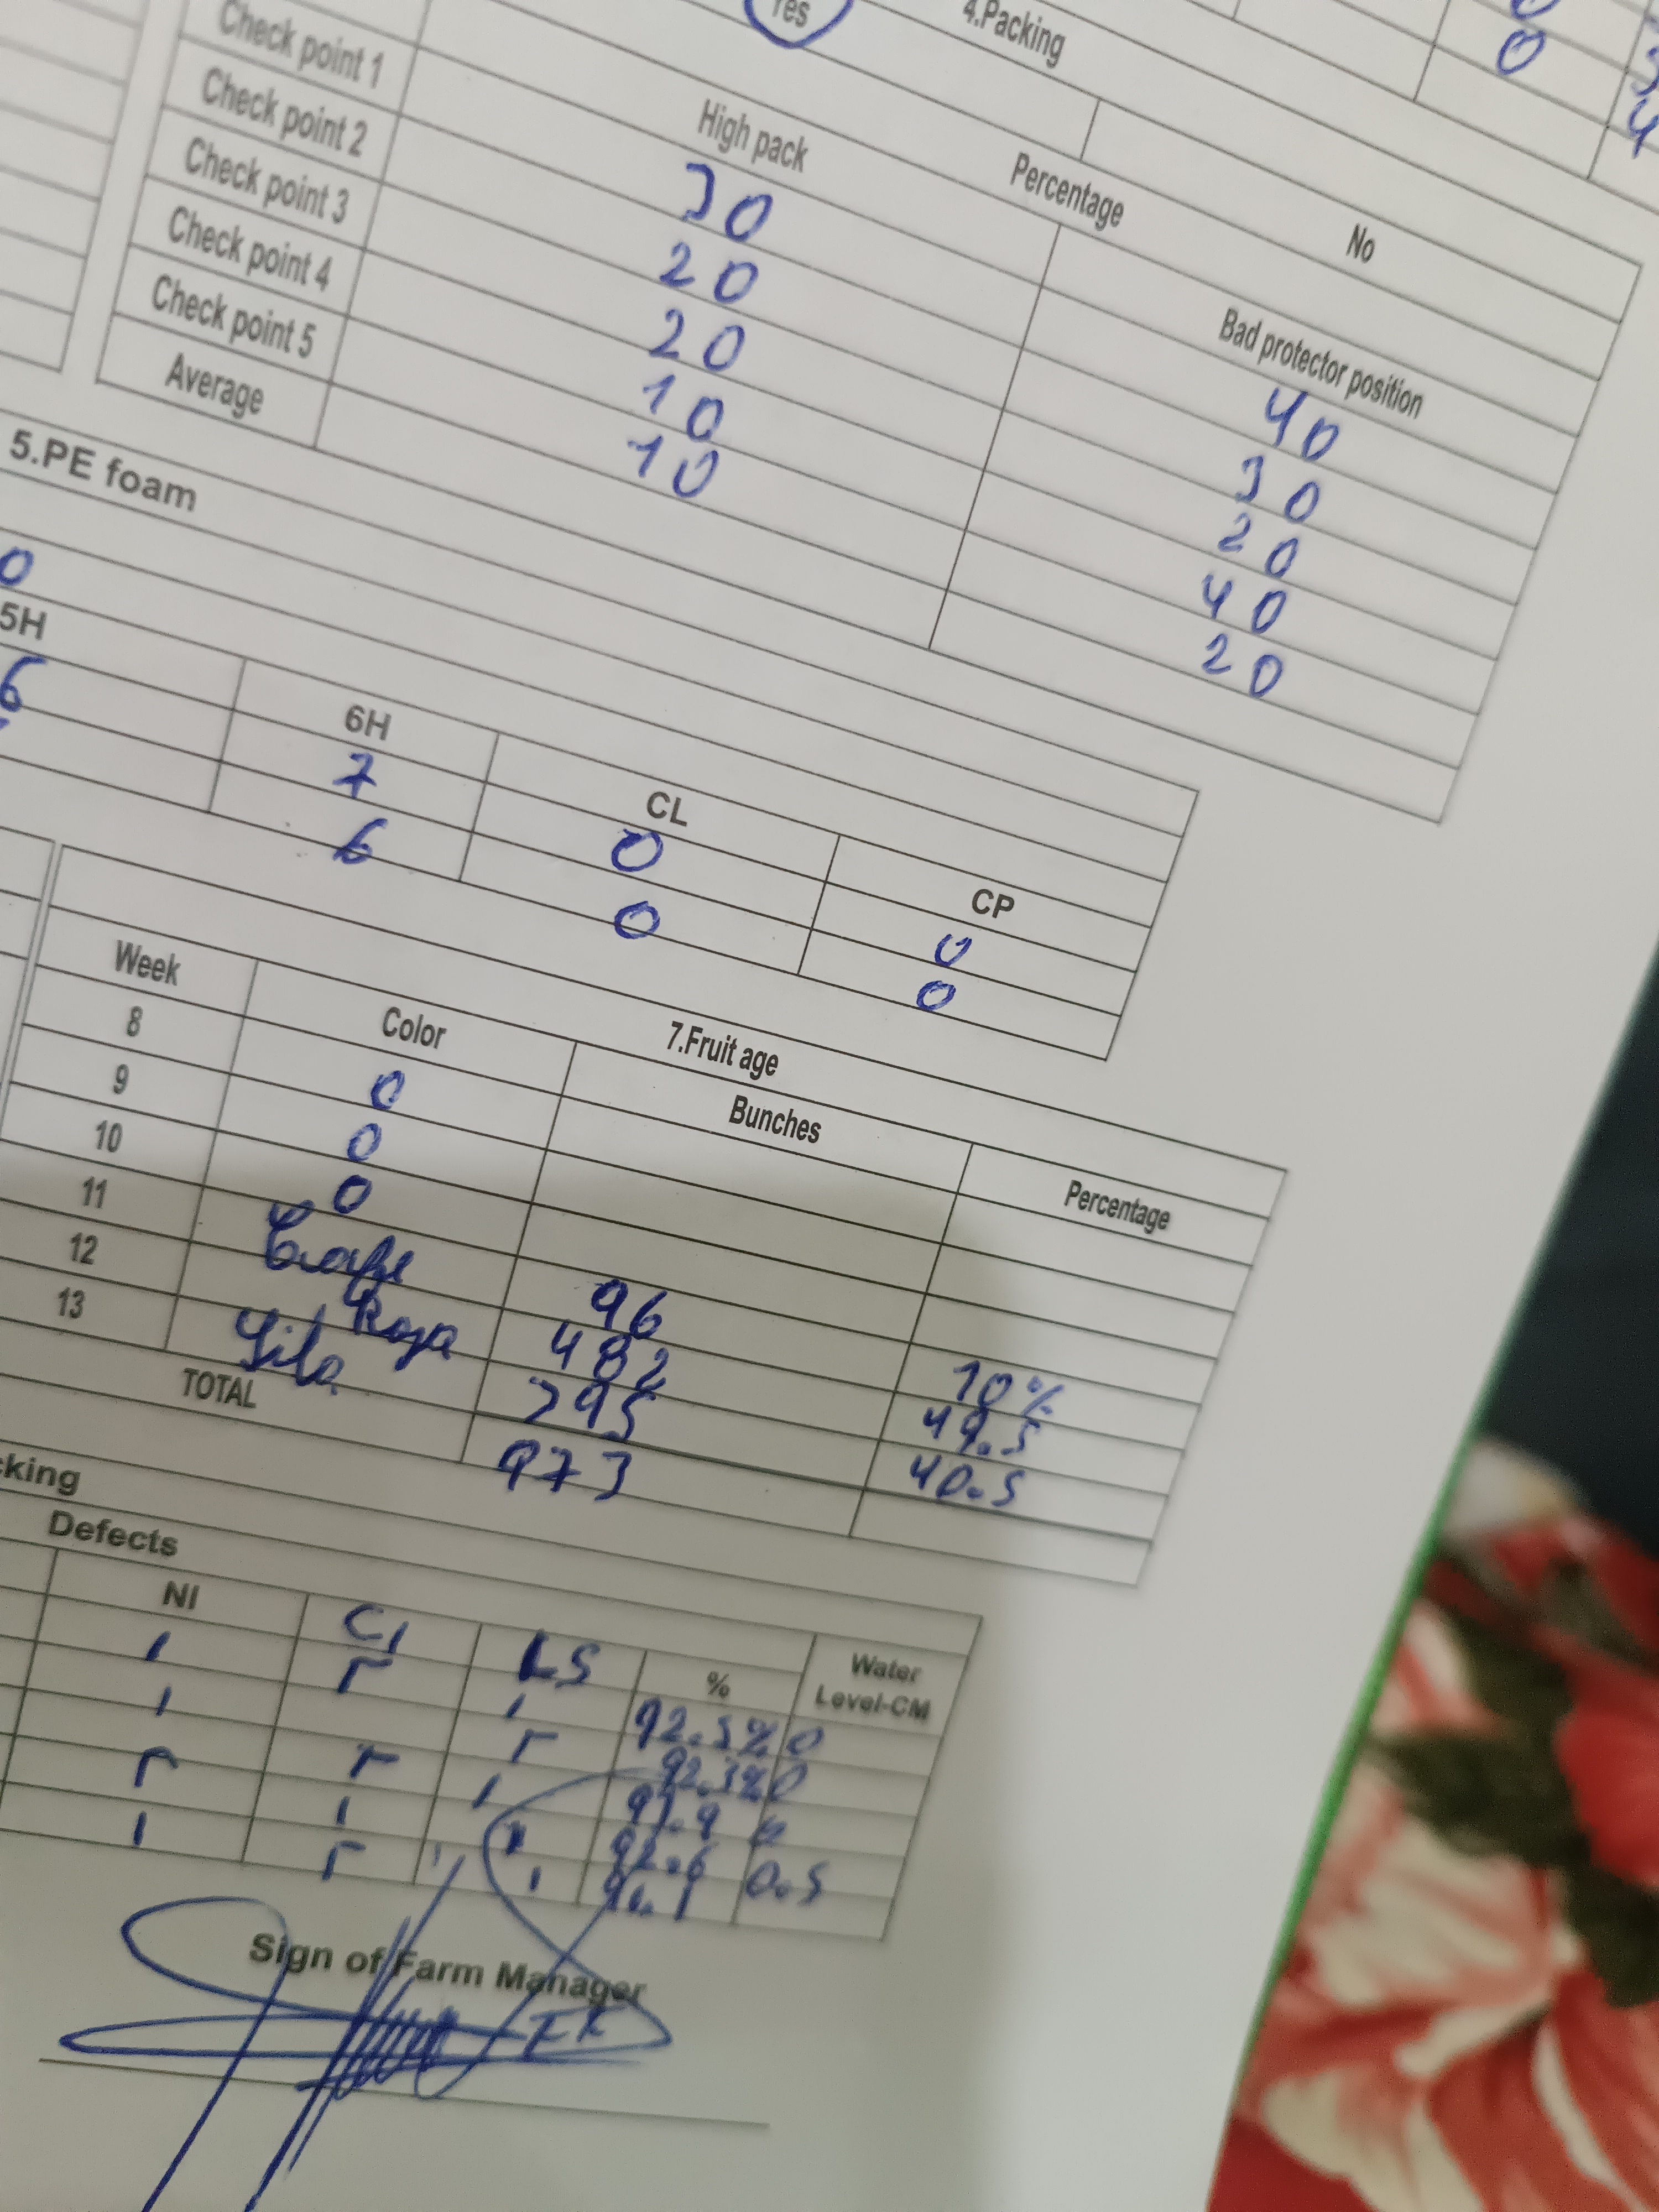 Yes
4.Packing
0
Percentage
No
High pack
Bad protector position
Check point 1 30 40
Check point 2 20 30
Check point 3 20 20
Check point 4 10 40
Check point 5 10 20
Average
5.PE foam
0
5H 6H CL CP
6 7 0 0
6 0 0
7.Fruit age
Week Color Bunches Percentage
8 0
9 0
10 0
11 Cafe 96 10%
12 Roja 482 49.5
13 Lila 395 40.5
TOTAL 973
cking
Defects
NI C1 LS % Water Level-CM
92.3% 0
92.3% 0
92.6 0.5
Sign of Farm Manager